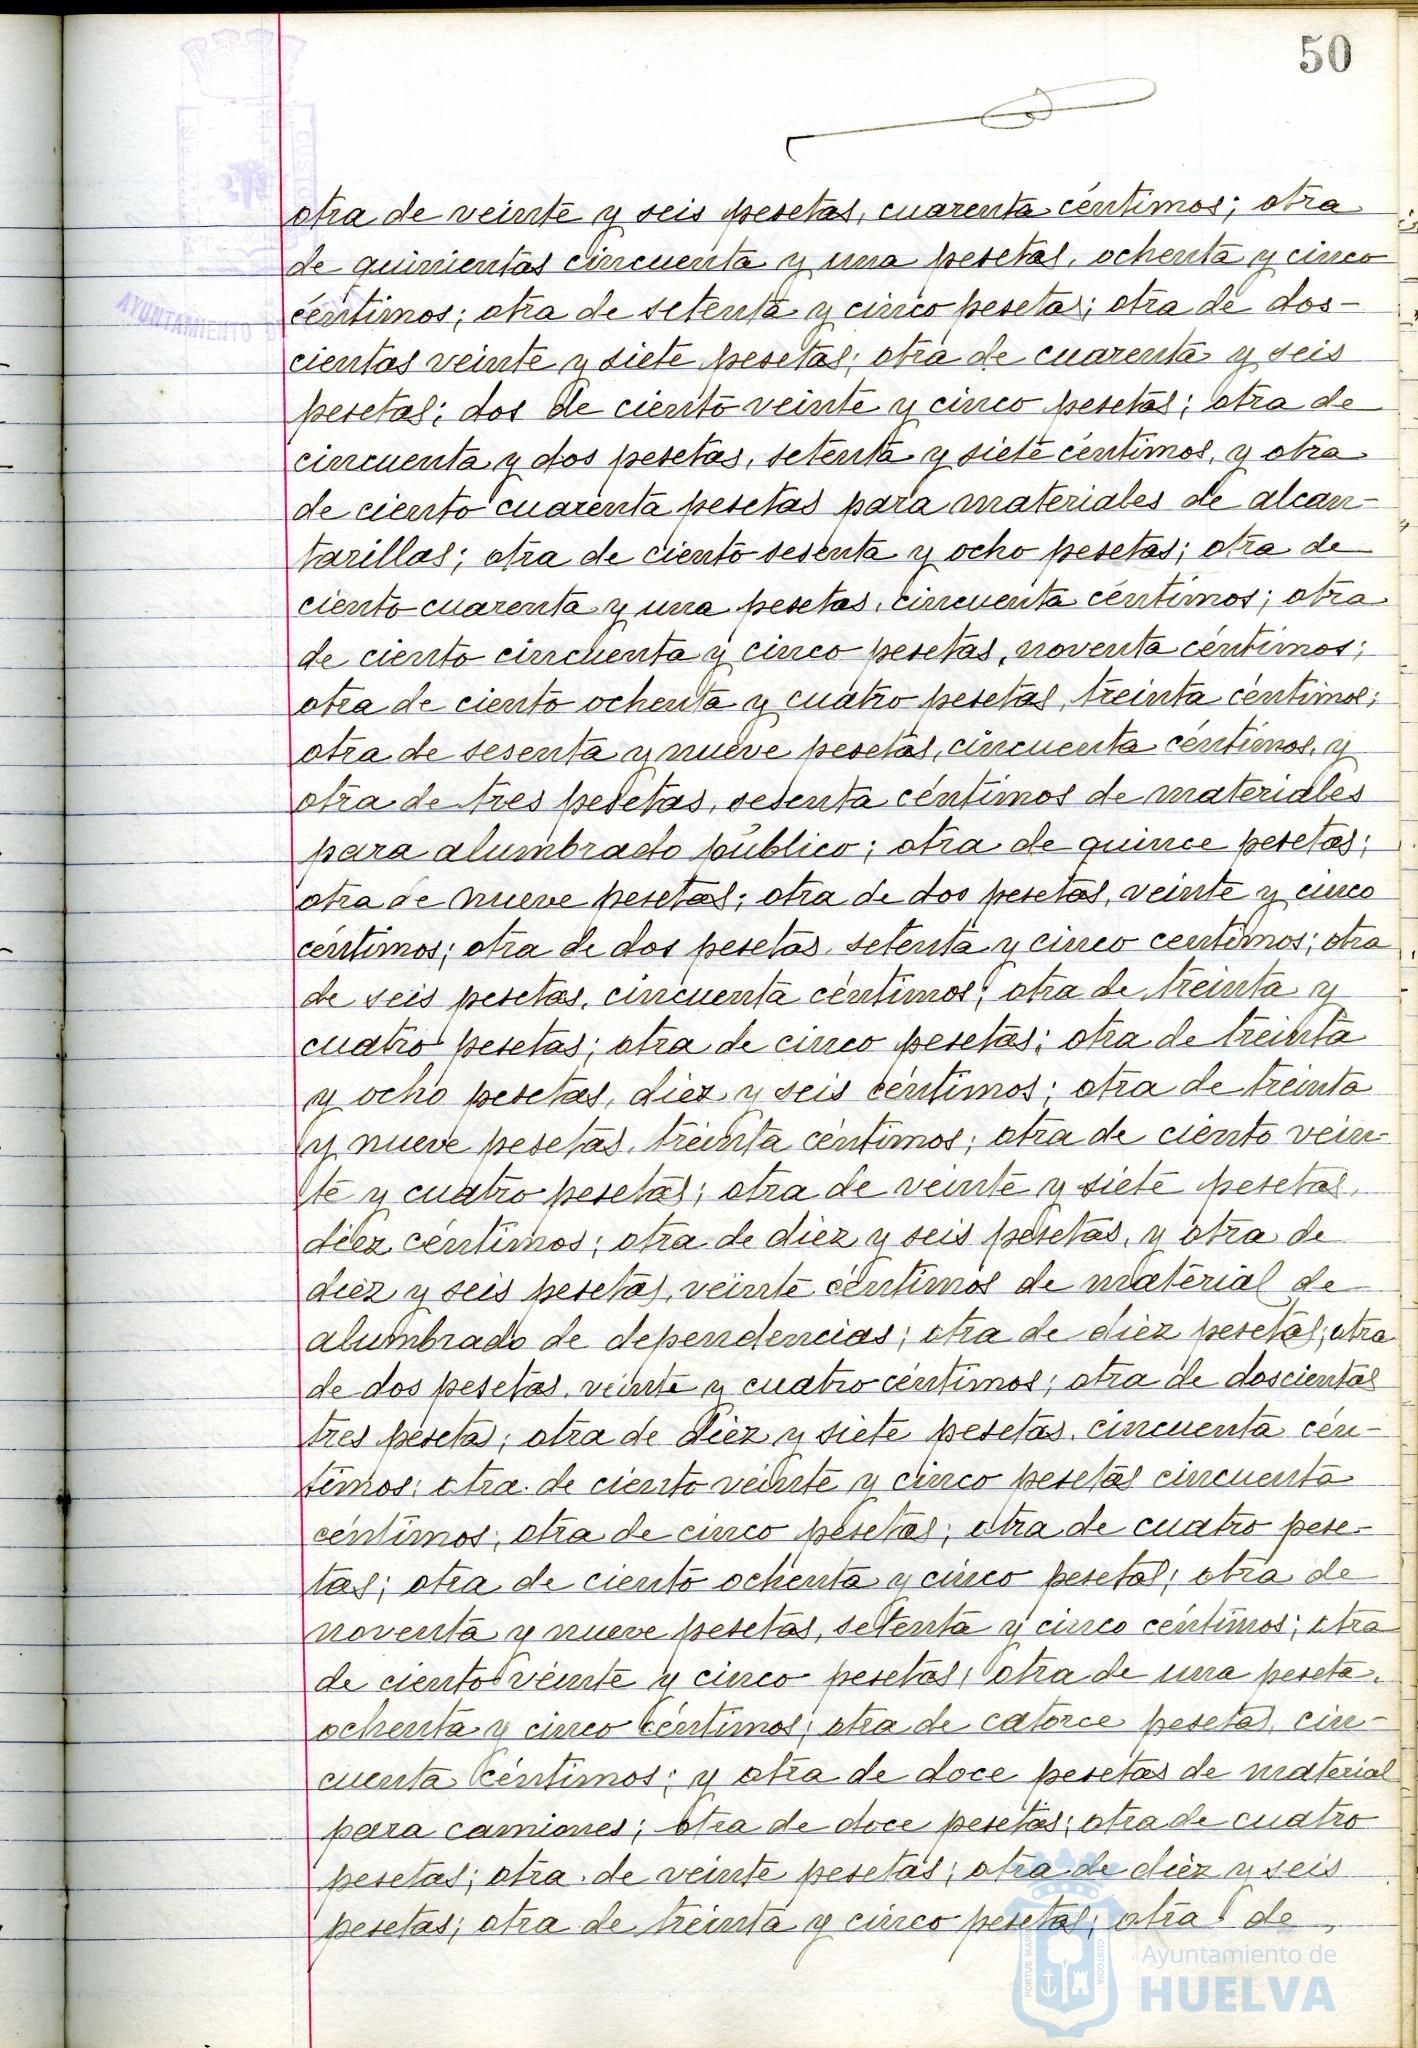 50
otra de veinte y seis pesetas, cuarenta céntimos; otra
de quinientas cincuenta y una pesetas, ochenta y cinco
céntimos; otra de setenta y cinco pesetas; otra de dos-
cientas veinte y siete pesetas; otra de cuarenta y seis
pesetas; dos de ciento veinte y cinco pesetas; otra de
cincuenta y dos pesetas, setenta y siete céntimos, y otra
de ciento cuarenta pesetas para materiales de alcan-
tarillas; otra de ciento sesenta y ocho pesetas; otra de
ciento cuarenta y una pesetas, cincuenta céntimos; otra
de ciento cincuenta y cinco pesetas, noventa céntimos;
otra de ciento ochenta y cuatro pesetas, treinta céntimos;
otra de sesenta y nueve pesetas, cincuenta céntimos, y
otra de tres pesetas, sesenta céntimos de materiales
para alumbrado público; otra de quince pesetas;
otra de nueve pesetas; otra de dos pesetas, veinte y cinco
céntimos; otra de dos pesetas, setenta y cinco centimos; otra
de seis pesetas, cincuenta céntimos; otra de treinta y
cuatro pesetas; otra de cinco pesetas; otra de treinta
y ocho pesetas, diez y seis céntimos; otra de treinta
y nueve pesetas, treinta céntimos; otra de ciento vein-
te y cuatro pesetas; otra de veinte y siete pesetas,
diez céntimos; otra de diez y seis pesetas, y otra de
diez y seis pesetas, veinte céntimos de material de
alumbrado de dependencias; otra de diez pesetas; otra
de dos pesetas, veinte y cuatro céntimos; otra de doscientas
tres pesetas; otra de diez y siete pesetas, cincuenta cén-
timos; otra de ciento veinte y cinco pesetas cincuenta
céntimos; otra de cinco pesetas; otra de cuatro pese-
tas; otra de ciento ochenta y cinco pesetas; otra de
noventa y nueve pesetas, setenta y cinco céntimos; otra
de ciento veinte y cinco pesetas; otra de una peseta,
ochenta y cinco céntimos; otra de catorce pesetas, cin-
cuenta céntimos; y otra de doce pesetas de material
para camiones; otra de doce pesetas; otra de cuatro
pesetas; otra de veinte pesetas; otra de diez y seis
pesetas; otra de treinta y cinco pesetas; otra de
AYUNTAMIENTO
PORTUS MARIS
CUSTODIA
Ayuntamiento de
HUELVA